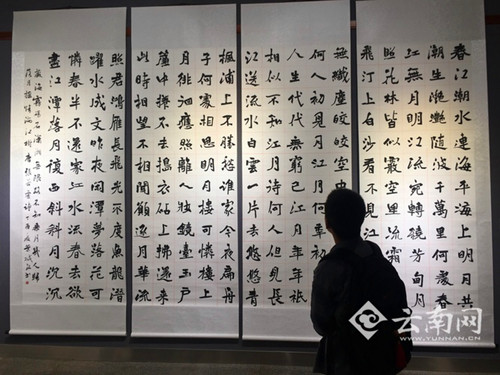 春江潮水連海平海上明月共
潮生灩灩隨波千萬里何處春
江無月明江流宛轉繞芳甸月
照花林皆似霰空裏流霜
飛汀上白沙看不見江
無纖塵皎皎空中
何人初見月江月何
人生代代無窮已江月年年祇
相似不知江月待何人但見長
江送流水白雲一片去悠悠青
楓浦上不勝愁誰家今夜扁舟
子何處相思明月樓可憐樓上
月徘徊應照離人妝鏡臺玉戶
簾中捲不去搗衣砧上拂還來
此時相望不相聞願逐月華流
照君鴻雁長飛光不度魚龍潛
躍水成文昨夜閑潭夢落花可
憐春半不還家江水流春去欲
盡江潭落月復西斜斜月沉沉
藏海霧碣石瀟湘無限路不知乘月幾人歸
落月搖情滿江樹
云南网
WWW.YUNNAN.CN